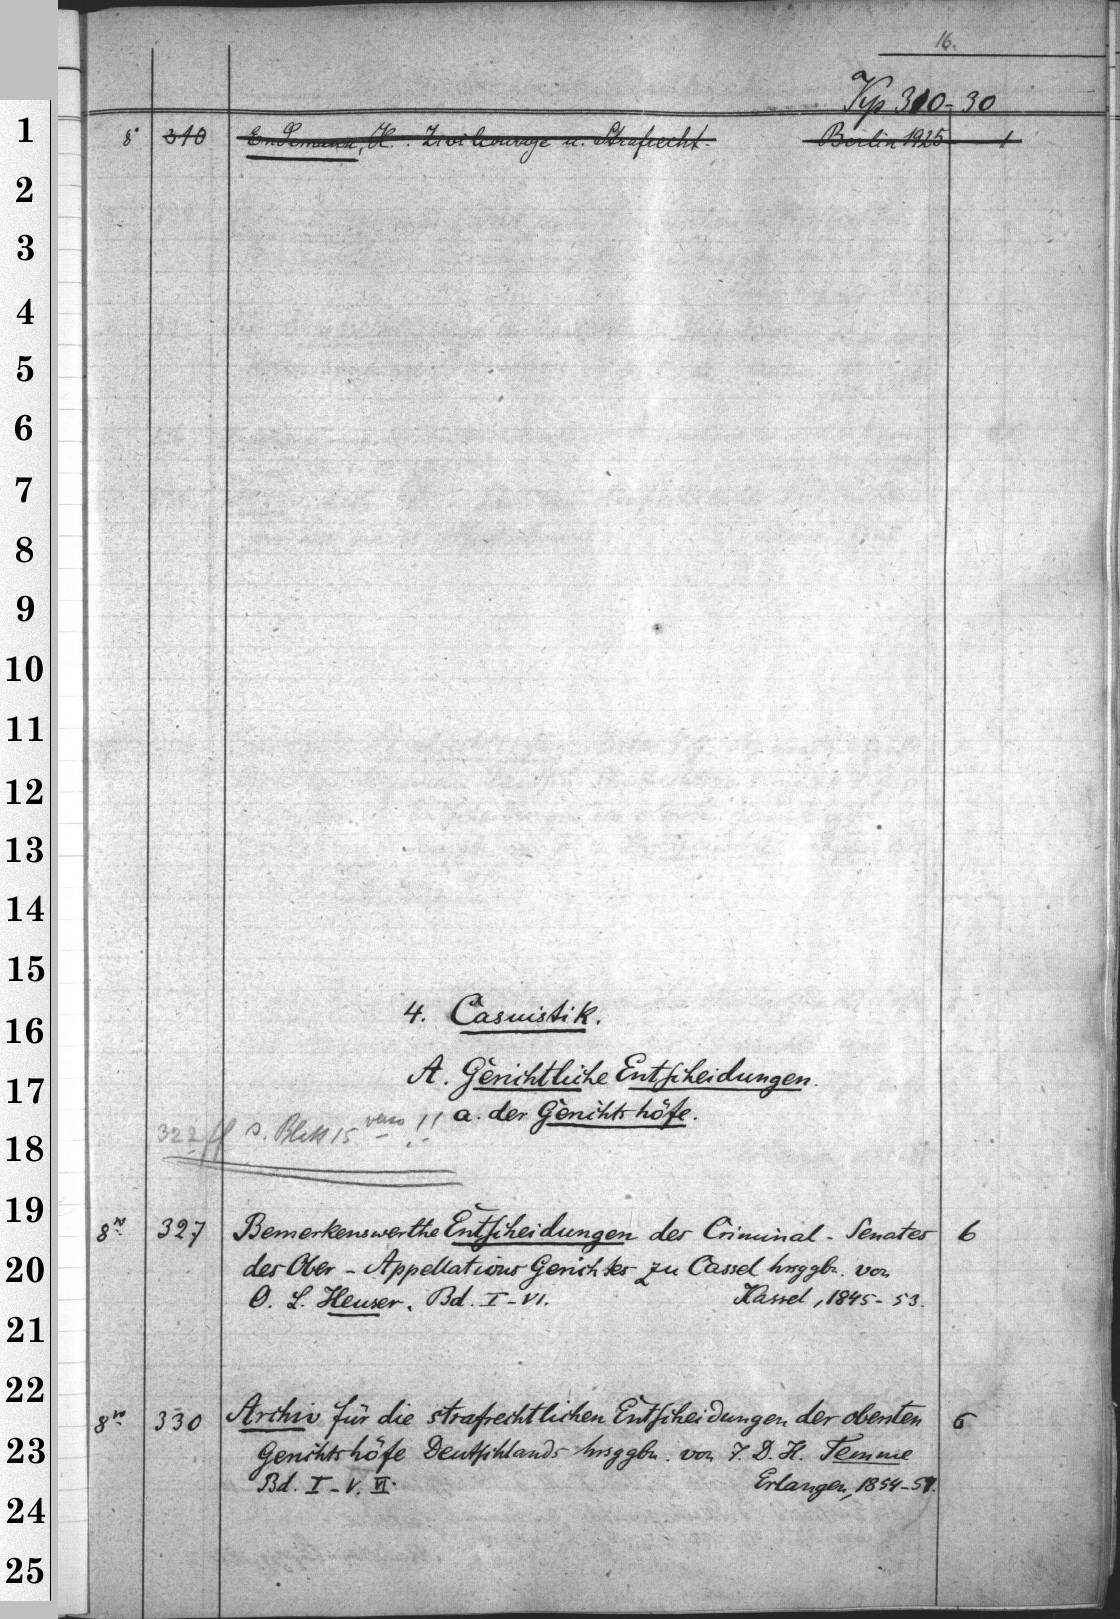 16.
Kp 310-30
1
8° 310 Endemann, H. Zivilcourage u. Strafrecht. Berlin 1925 1
2
3
4
5
6
7
8
9
10
11
12
13
14
15
4. Casuistik.
16
A. Gerichtliche Entscheidungen.
17
a. der Gerichtshöfe.
322 ff s. Blatt 15 verso !!
18
19
8vo 327 Bemerkenswerthe Entscheidungen des Criminal-Senates 6
20 des Ober-Appellations Gerichtes zu Cassel hrsggbn. von
O. L. Heuser. Bd. I-VI. Kassel, 1845-53.
21
22
8vo 330 Archiv für die strafrechtlichen Entscheidungen der obersten 6
23 Gerichtshöfe Deutschlands hrsggbn. von J. D. H. Temme
Bd. I-V. VI. Erlangen, 1854-59.
24
25